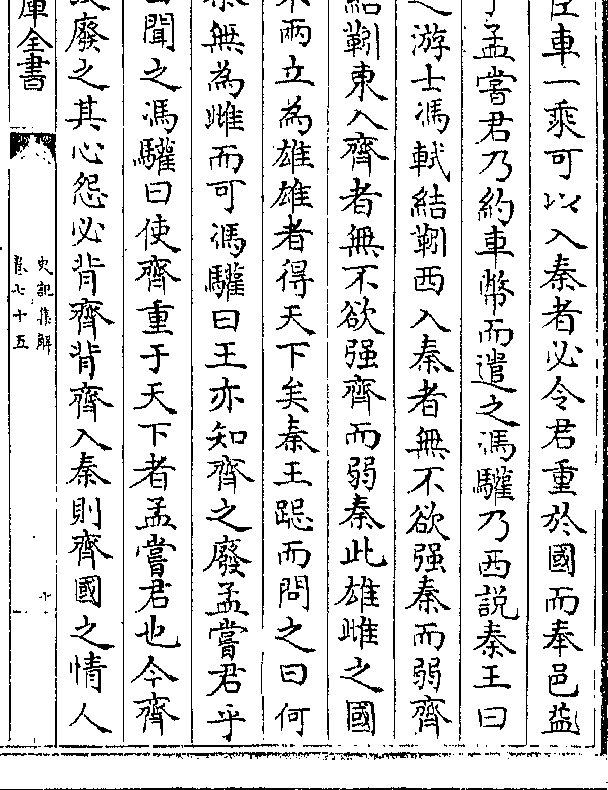 車一乘可以入秦者必令君重於國而奉邑益
孟嘗君乃約車幣而遣之馮驩乃西説秦王曰
之游士馮軾結靷西入秦者無不欲强秦而弱齊
結靷東入齊者無不欲强齊而弱秦此雄雌之國
不兩立為雄雄者得天下矣秦王跽而問之曰何
無為雌而可馮驩曰王亦知齊之廢孟嘗君乎
曰聞之馮驩曰使齊重于天下者孟嘗君也今齊
廢之其心怨必背齊背齊入秦則齊國之情人
庫全書
史記集解
卷七十五
十一